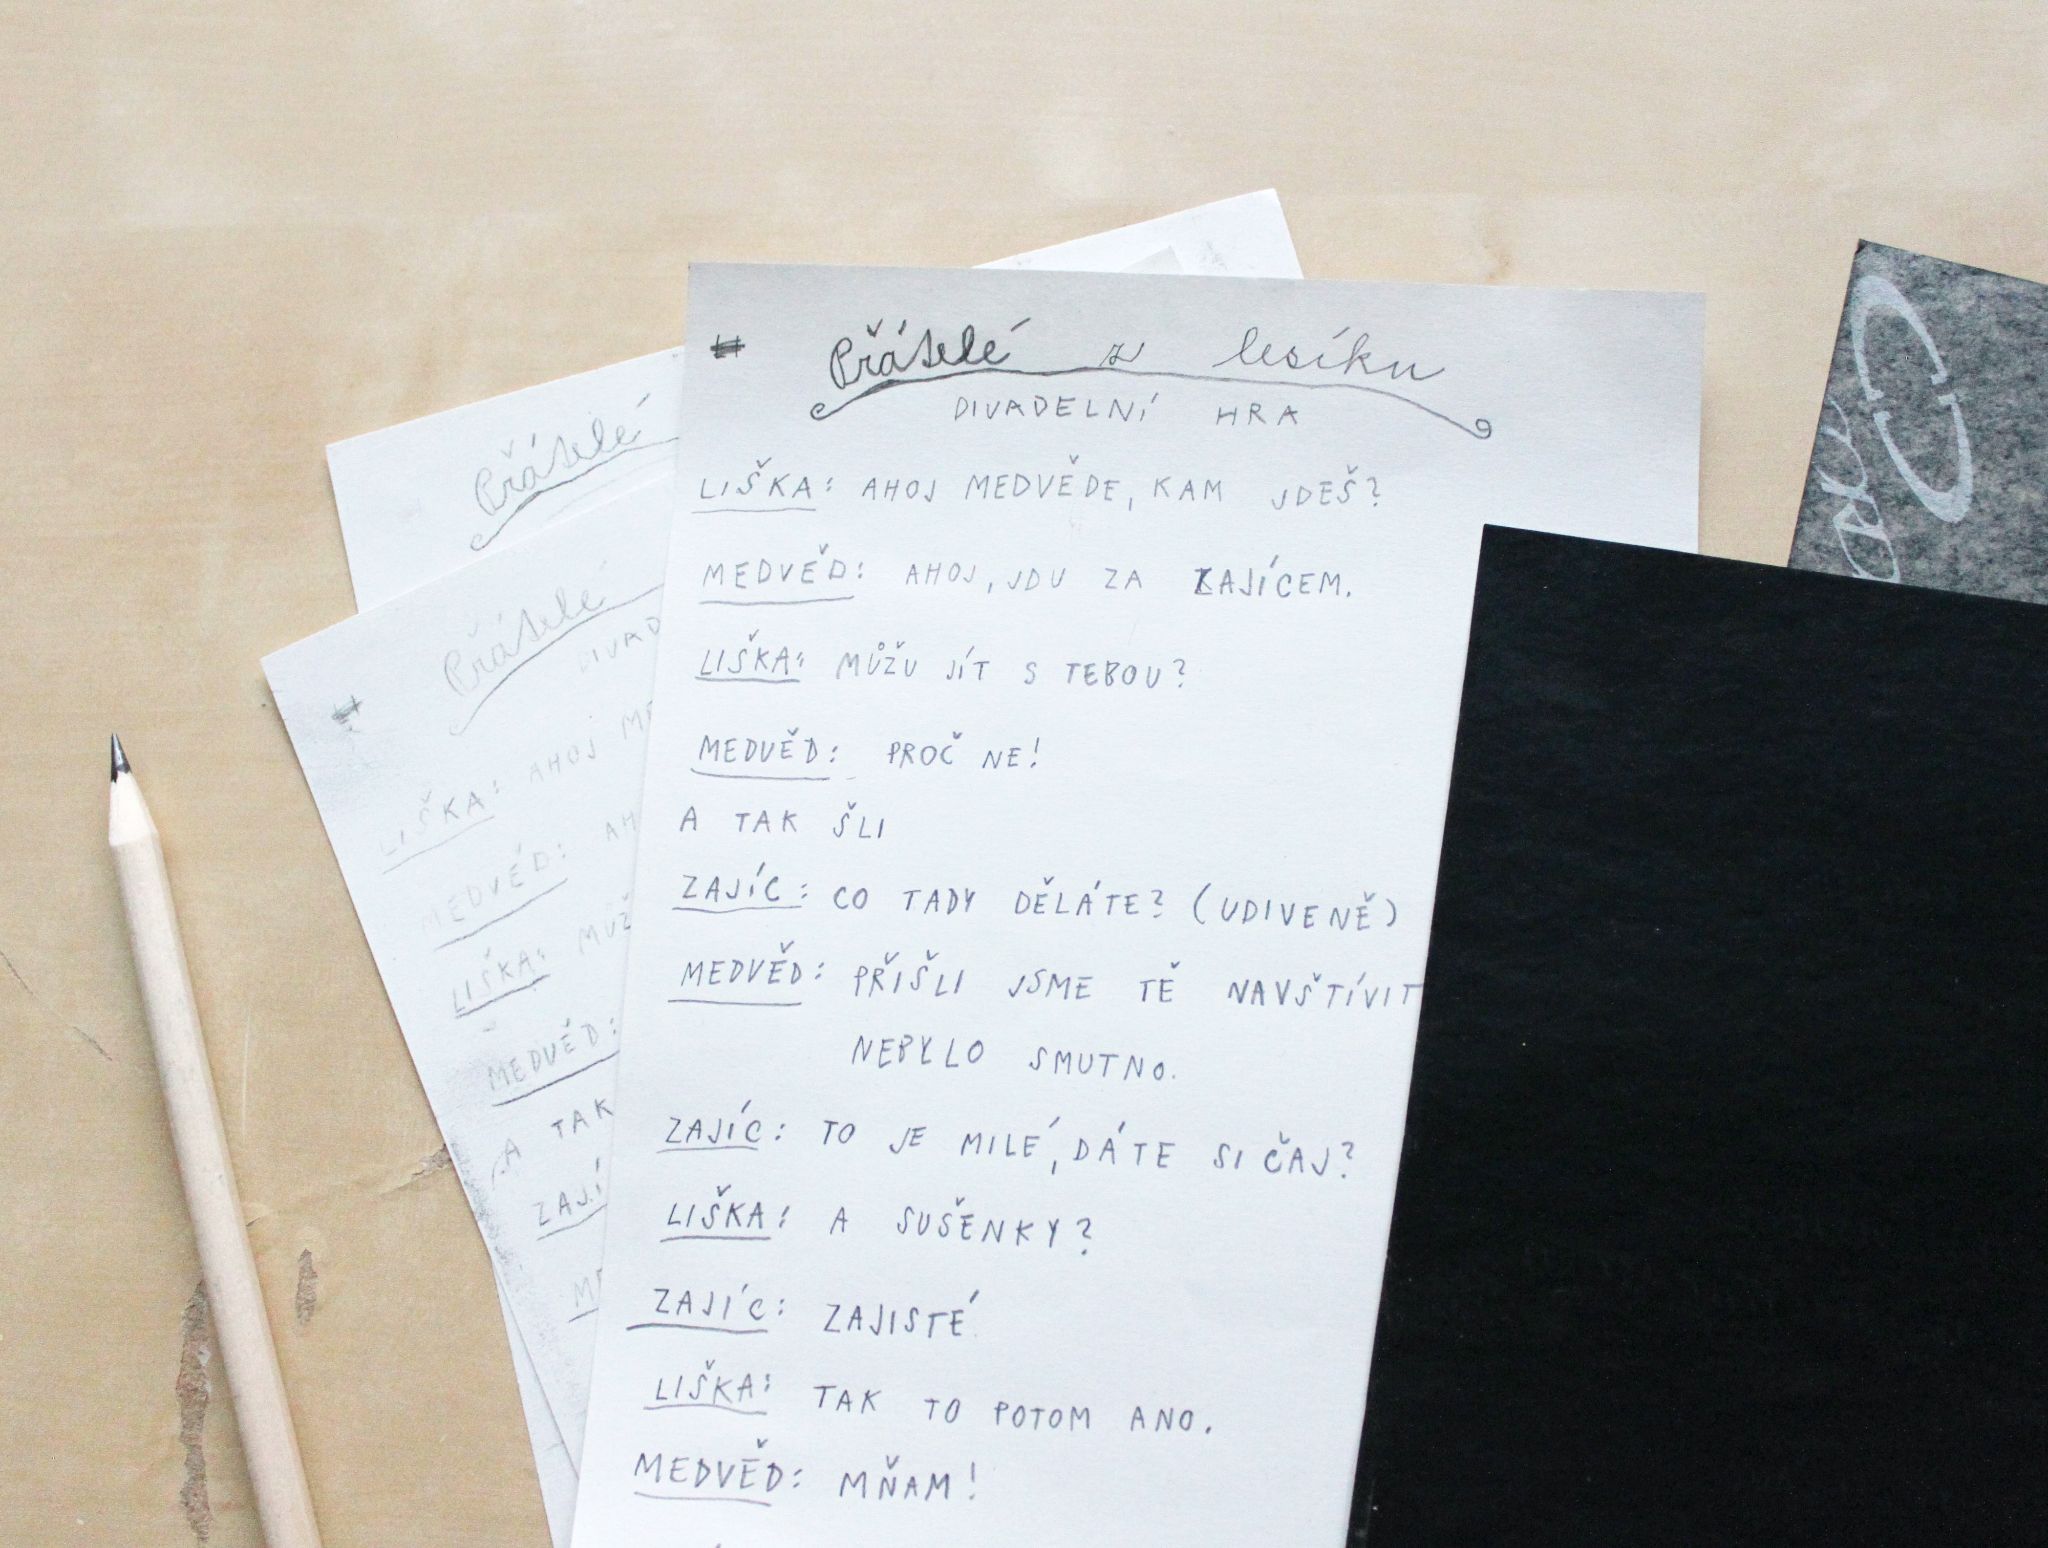 Přátelé z lesíku
DIVADELNÍ HRA
LIŠKA: AHOJ MEDVĚDE, KAM JDEŠ?
MEDVĚD: AHOJ, JDU ZA ZAJÍCEM.
LIŠKA: MŮŽU JÍT S TEBOU?
MEDVĚD: PROČ NE!
A TAK ŠLI
ZAJÍC: CO TADY DĚLÁTE? (UDIVENĚ)
MEDVĚD: PŘIŠLI JSME TĚ NAVŠTÍVIT
NEBYLO SMUTNO.
ZAJÍC: TO JE MILÉ, DÁTE SI ČAJ?
LIŠKA: A SUŠENKY?
ZAJÍC: ZAJISTÉ
LIŠKA: TAK TO POTOM ANO.
MEDVĚD: MŇAM!
Přátelé
Přátelé
DIVAD
LIŠKA: AHOJ ME
MEDVĚD: AH
LIŠKA: MŮŽ
MEDVĚD:
A TAK
ZAJÍ